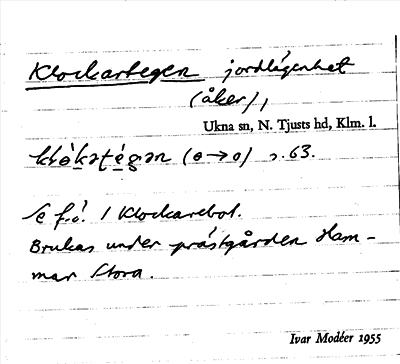 Klockartegen jordlägenhet
(åker),
Ukna sn, N. Tjusts hd, Klm. l.
(ɵ→o) s. 63.
Se f.ö. 1 Klockarebol.
Brukas under prästgården Ham-
mar Stora.
Ivar Modéer 1955